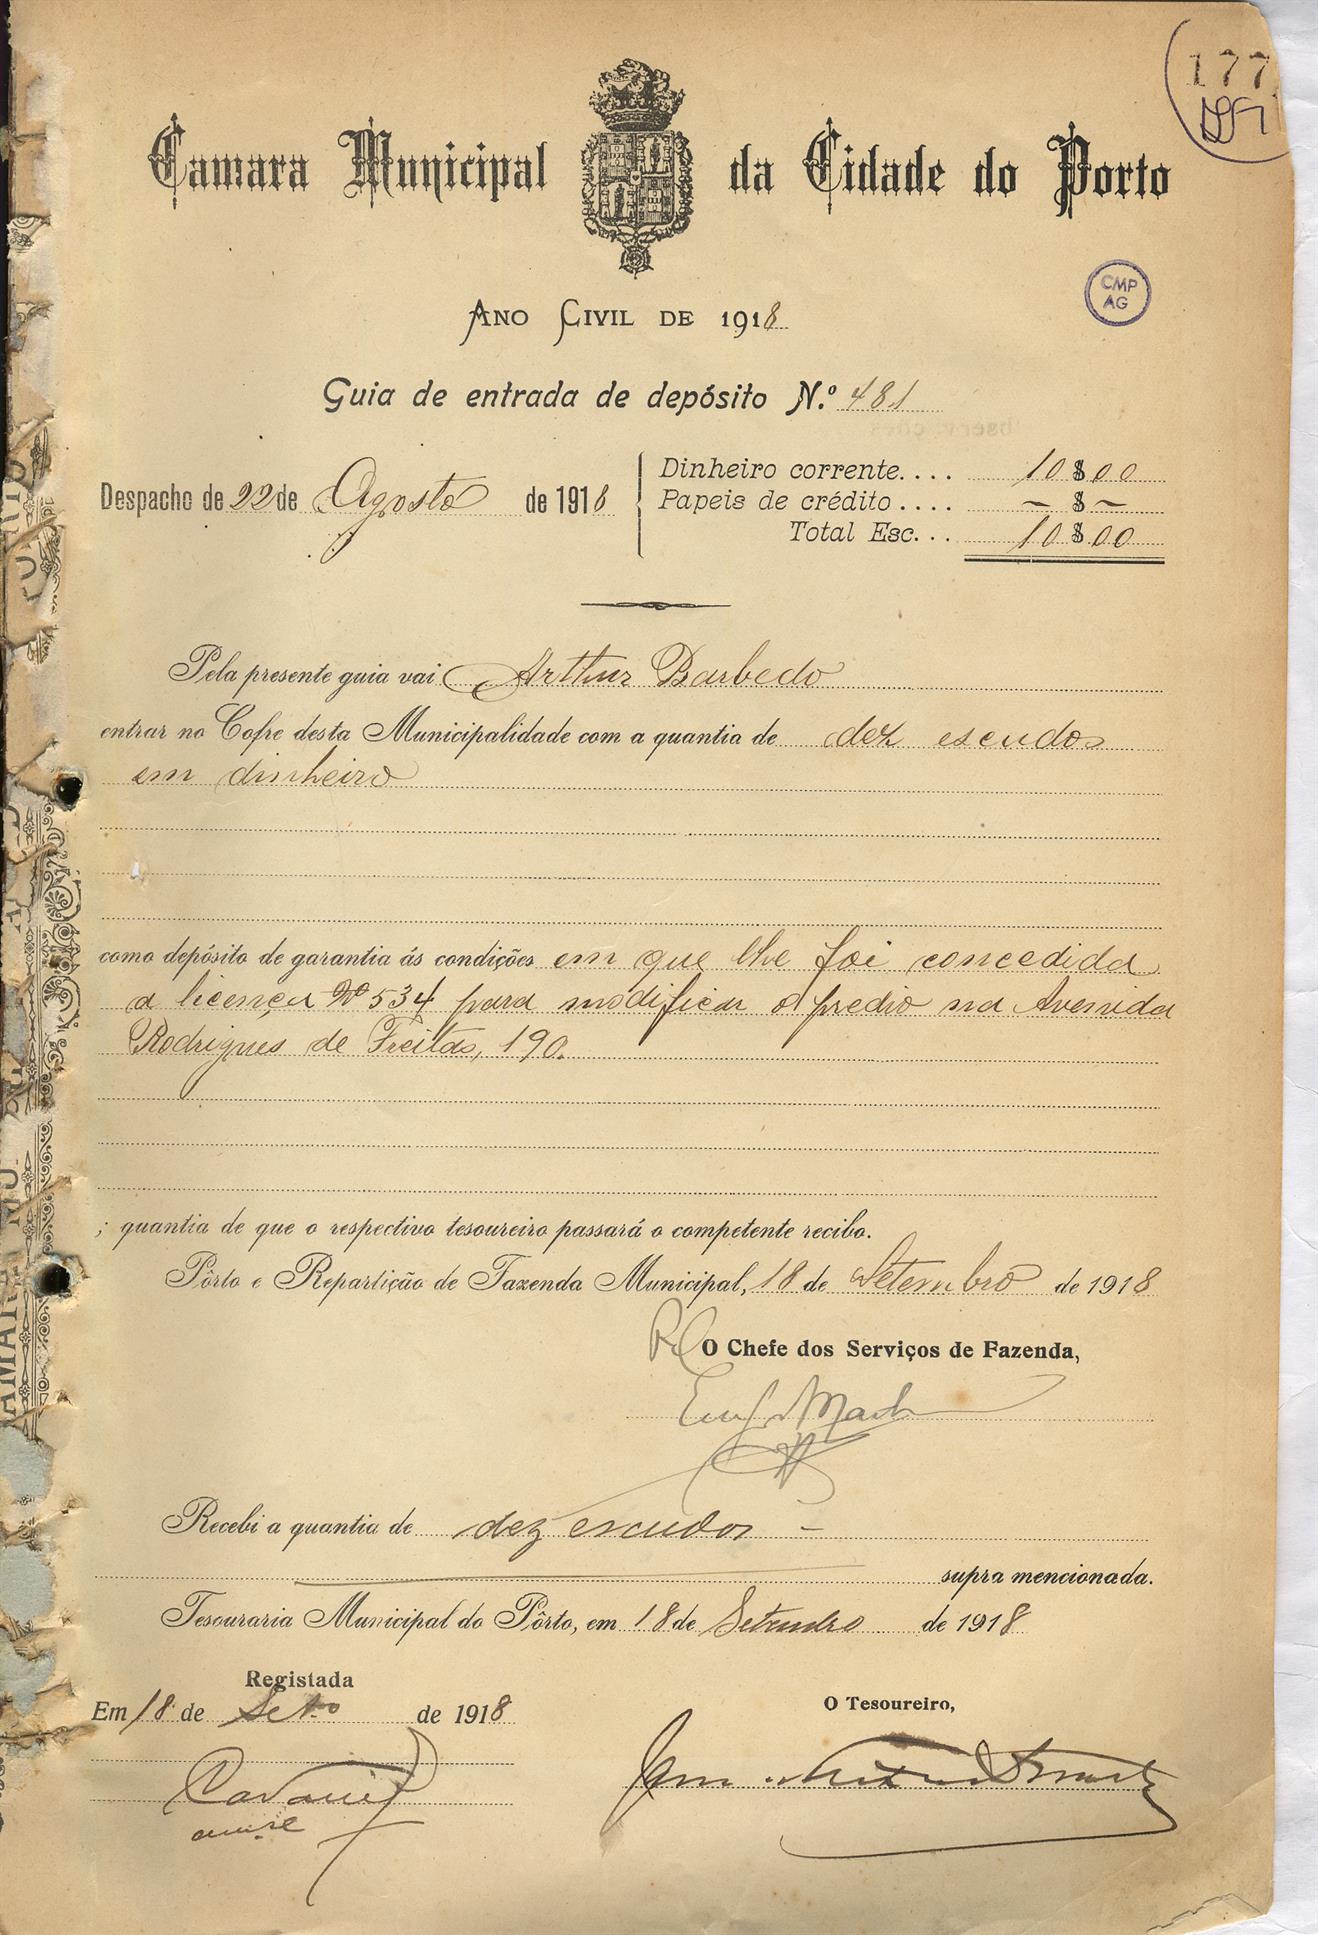 177
Camara Municipal da Cidade do Porto
CMP
AG
ANO CIVIL DE 1918
Guia de entrada de depósito N.º 481
Despacho de 22 de Agosto de 1918
Dinheiro corrente.... 10$00
Papeis de crédito.... - $ -
Total Esc... 10$00
Pela presente guia vai Arthur Barbedo
entrar no Cofre desta Municipalidade com a quantia de dez escudos
em dinheiro
como depósito de garantia ás condições em que lhe foi concedida
a licença Nº 534 para modificar o predio na Avenida
Rodrigues de Freitas, 190.
; quantia de que o respectivo tesoureiro passará o competente recibo.
Pôrto e Repartição de Fazenda Municipal, 18 de Setembro de 1918
O Chefe dos Serviços de Fazenda,
Recebi a quantia de dez escudos -
supra mencionada.
Tesouraria Municipal do Pôrto, em 18 de Setembro de 1918
Registada
Em 18 de Set.º de 1918
O Tesoureiro,